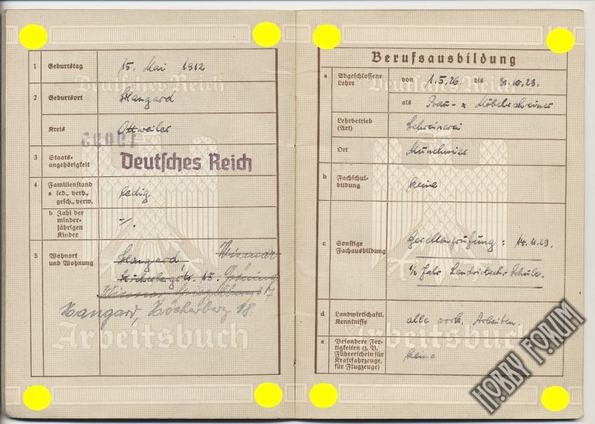 1 Geburtstag 15. Mai 1912
2 Geburtsort Hangard
Kreis Ottweiler
3 Staats-
angehörigkeit Deutsches Reich
4 Familienstand
a led., verh.,
gesch., verw. ledig
b Zahl der
minder-
jährigen
Kinder -/.
5 Wohnort
und Wohnung Hangard, Wismar
Hangard, Höcherberg 18
Arbeitsbuch
Deutsches Reich
Berufsausbildung
a Abgeschlossene
Lehre von 1.5.26. bis
als Bau- u Möbelschreiner
Lehrbetrieb
(Art) Schreinerei
Ort Münchwies
b Fachschul-
bildung keine
c Sonstige
Fachausbildung Gesellenprüfung:
1/2 Jahr
d Landwirtschaftl.
Kenntnisse alle vork. Arbeiten.
e Besondere Fer-
tigkeiten (z. B.
Führerschein für
Kraftfahrzeuge,
für Flugzeuge) keine
Deutsches Reich
Arbeitsbuch
HOBBY FORUM